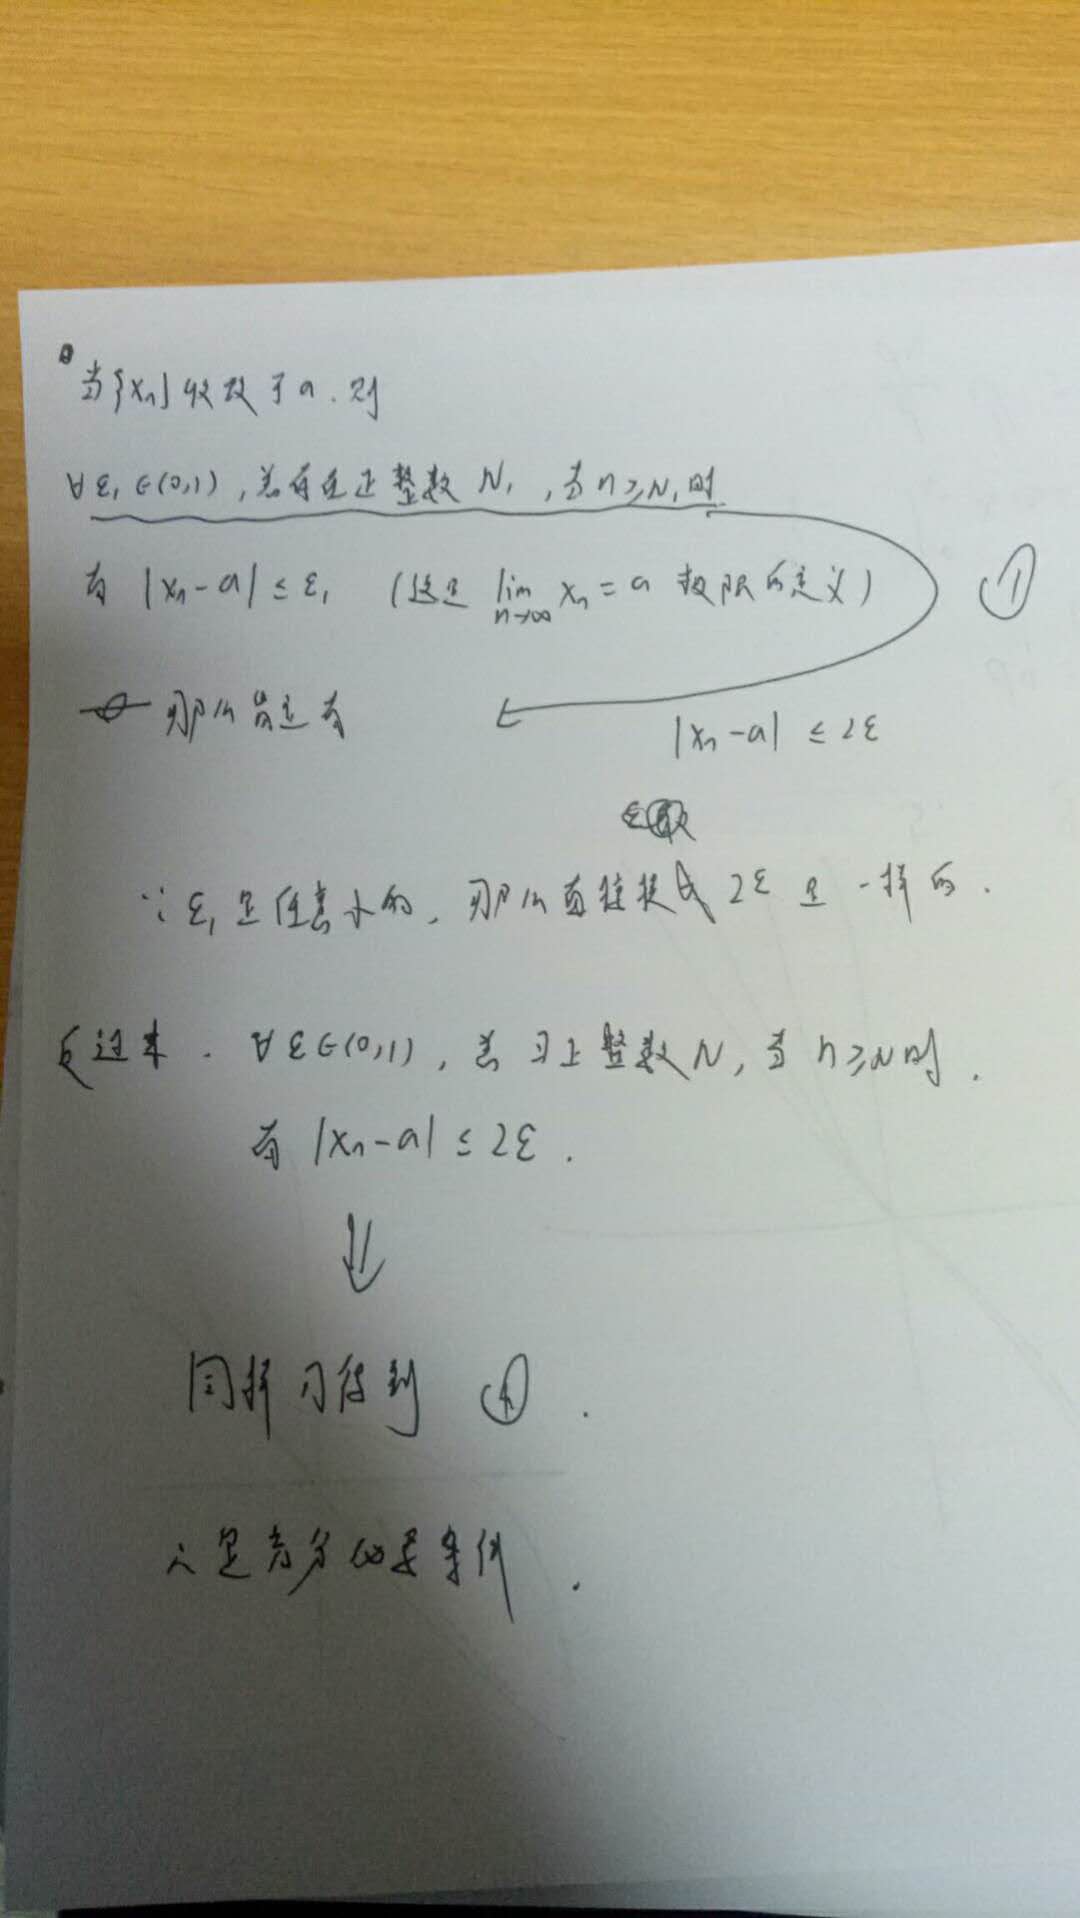 当{xn}收敛于a.则
∀ε₁∈(0,1),总存在正整数N₁,当n≥N₁时
有 |xn-a|≤ε₁ (这是 lim n→∞ xn=a 极限的定义) ①
那么肯定有
|xn-a|≤2ε
∵ε₁是任意小的,那么直接换成2ε是一样的.
反过来.∀ε∈(0,1),总∃正整数N,当n≥N时.
有|xn-a|≤2ε.
⇓
同样可得到 ①.
∴是充分必要条件.